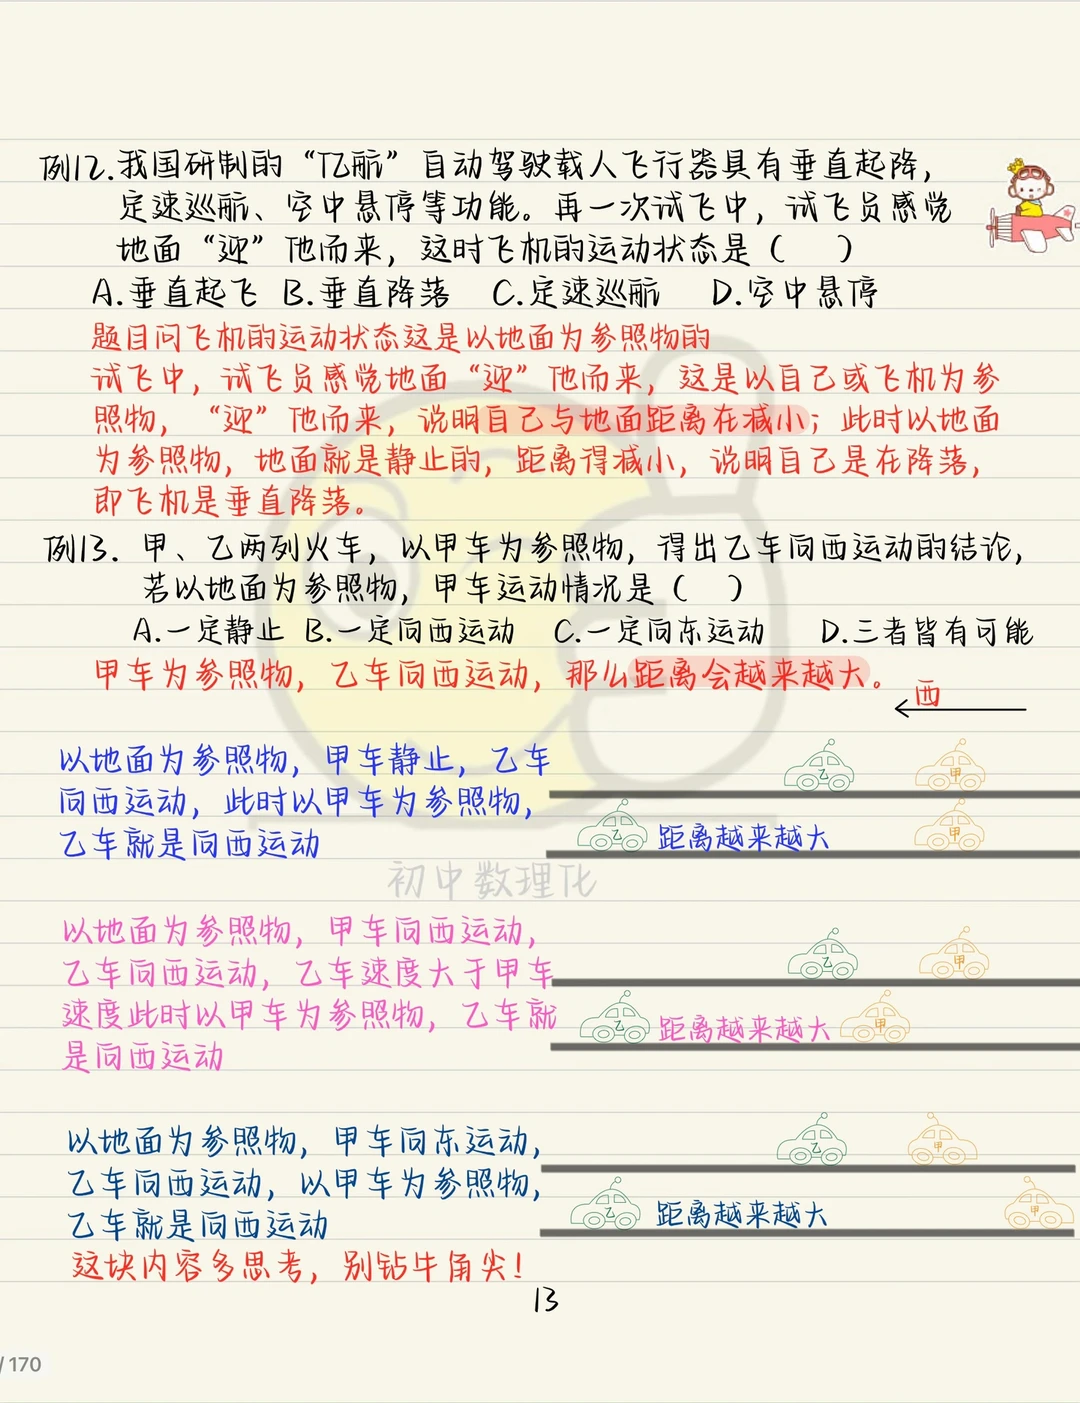 例12.我国研制的“亿航”自动驾驶载人飞行器具有垂直起降,
定速巡航、空中悬停等功能。再一次试飞中,试飞员感觉
地面“迎”他而来,这时飞机的运动状态是( )
A.垂直起飞 B.垂直降落 C.定速巡航 D.空中悬停
题目问飞机的运动状态这是以地面为参照物的
试飞中,试飞员感觉地面“迎”他而来,这是以自己或飞机为参
照物,“迎”他而来,说明自己与地面距离在减小;此时以地面
为参照物,地面就是静止的,距离得减小,说明自己是在降落,
即飞机是垂直降落。
例13. 甲、乙两列火车,以甲车为参照物,得出乙车向西运动的结论,
若以地面为参照物,甲车运动情况是( )
A.一定静止 B.一定向西运动 C.一定向东运动 D.三者皆有可能
甲车为参照物,乙车向西运动,那么距离会越来越大。
西
以地面为参照物,甲车静止,乙车
向西运动,此时以甲车为参照物,
乙车就是向西运动
乙 甲
乙 距离越来越大 甲
初中数理化
以地面为参照物,甲车向西运动,
乙车向西运动,乙车速度大于甲车
速度此时以甲车为参照物,乙车就
是向西运动
乙 甲
乙 距离越来越大 甲
以地面为参照物,甲车向东运动,
乙车向西运动,以甲车为参照物,
乙车就是向西运动
乙 甲
乙 距离越来越大 甲
这块内容多思考,别钻牛角尖!
13
/170